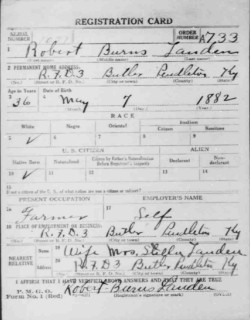 REGISTRATION CARD
SERIAL NUMBER ORDER NUMBER A733
1 Robert Burns Landen
2 PERMANENT HOME ADDRESS:
R.F.D3 Butler Pendleton Ky
Age in Years Date of Birth
36 May 7 1882
RACE
White Negro Oriental Indian
Citizen Noncitizen
5 ✓
U. S. CITIZEN ALIEN
Native Born Naturalized Citizen by Father's Naturalization Before Registrant's Majority Declarant Non-declarant
10 ✓
PRESENT OCCUPATION EMPLOYER'S NAME
Farmer Self
PLACE OF EMPLOYMENT OR BUSINESS:
R.F.D3 Butler Pendleton Ky
NEAREST RELATIVE
Wife Mrs, Landen
R.F.D3 Butler Pendleton Ky
I AFFIRM THAT I HAVE VERIFIED ABOVE ANSWERS AND THAT THEY ARE TRUE
P. M. G. O.
Form No. 1 (Red)
Robert Burns Landen